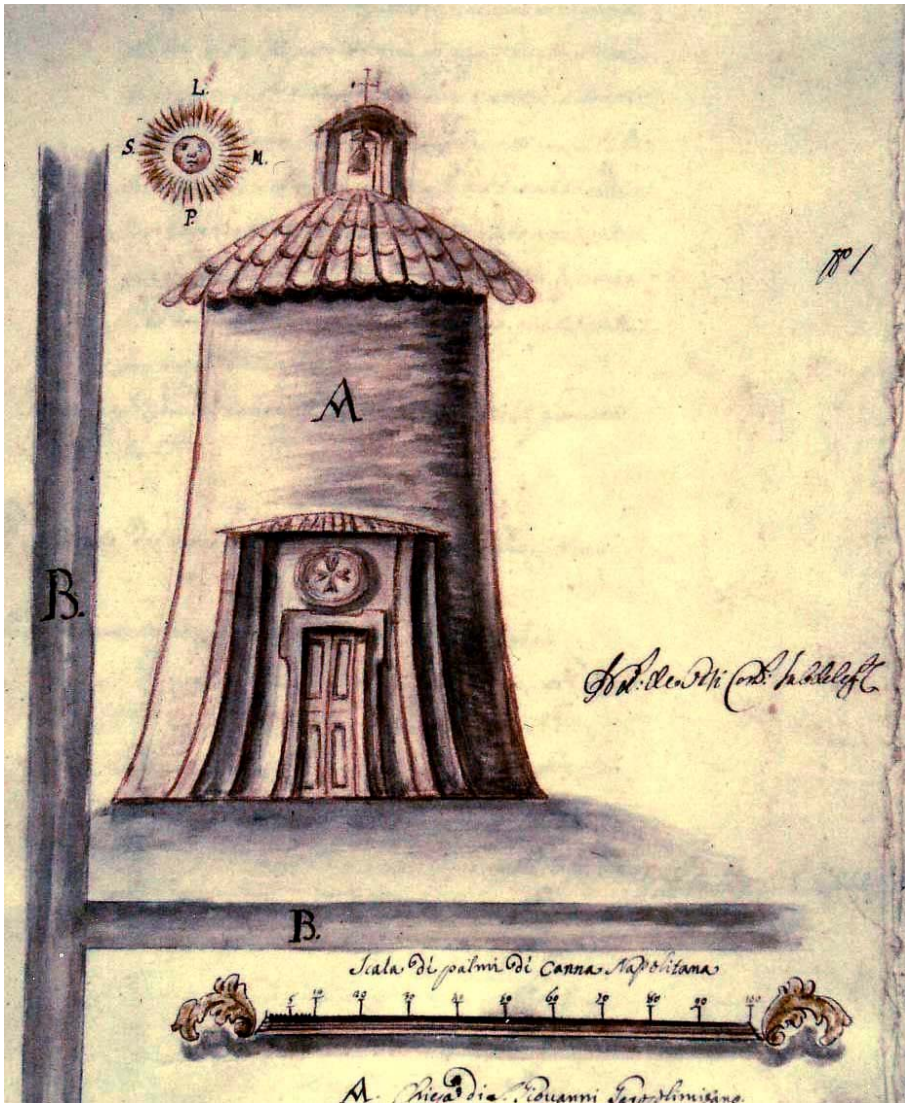 L.
S. M.
P.
No 1
A
B.
B.
Scala di palmi di Canna Napolitana
5 10 20 30 40 50 60 70 80 90 100
A. Chiesa di S. Giovanni